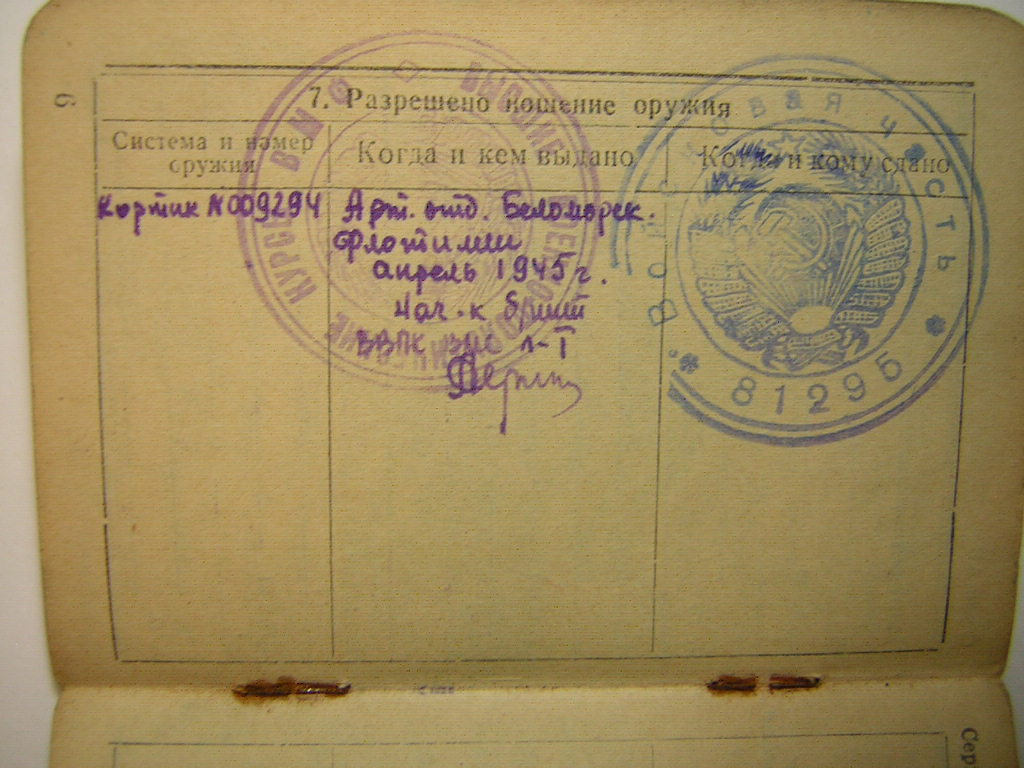 9
7. Разрешено ношение оружия
Система и номер оружия
Когда и кем выдано
Когда и кому сдано
Кортик N009294
Арт. отд. Беломорск.
Флотилии
апрель 1945 г.
Нач-к
ВВПК вмс л-т
Войсковая часть
* 81295 *
КУРСЫ ВМС
Сер